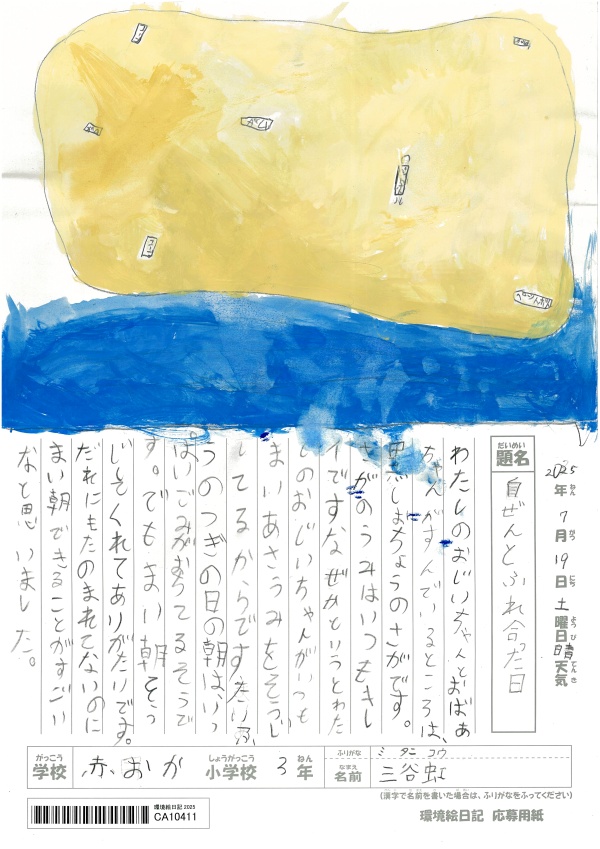 だいめい
題名
自ぜんとふれ合った日
2025年7月19日土曜日晴天気
ねん
がつ
にち
ようび
てんき
わたしのおじいちゃんとおばあ
ちゃんがすんでいるところは、
ちょうのさがです。
さがのうみはいつもきし
イですなぜかというとわた
しのおじいちゃんがいつも
まいあさうみをそうじ
してるからです。たいふ
うのつぎの日の朝は、いっ
ぱいごみがおちてるそうで
す。でもまい朝そう
じしてくれてありがたいです。
だれにもたのまれてないのに
まい朝できることがすごい
なと思いました。
がっこう
学校
赤おか
しょうがっこう
小学校
3
ねん
年
ふりがな
ミタニ コウ
なまえ
名前
三谷虹
(漢字で名前を書いた場合は、ふりがなをふってください)
環境絵日記 2025
CA10411
環境絵日記 応募用紙